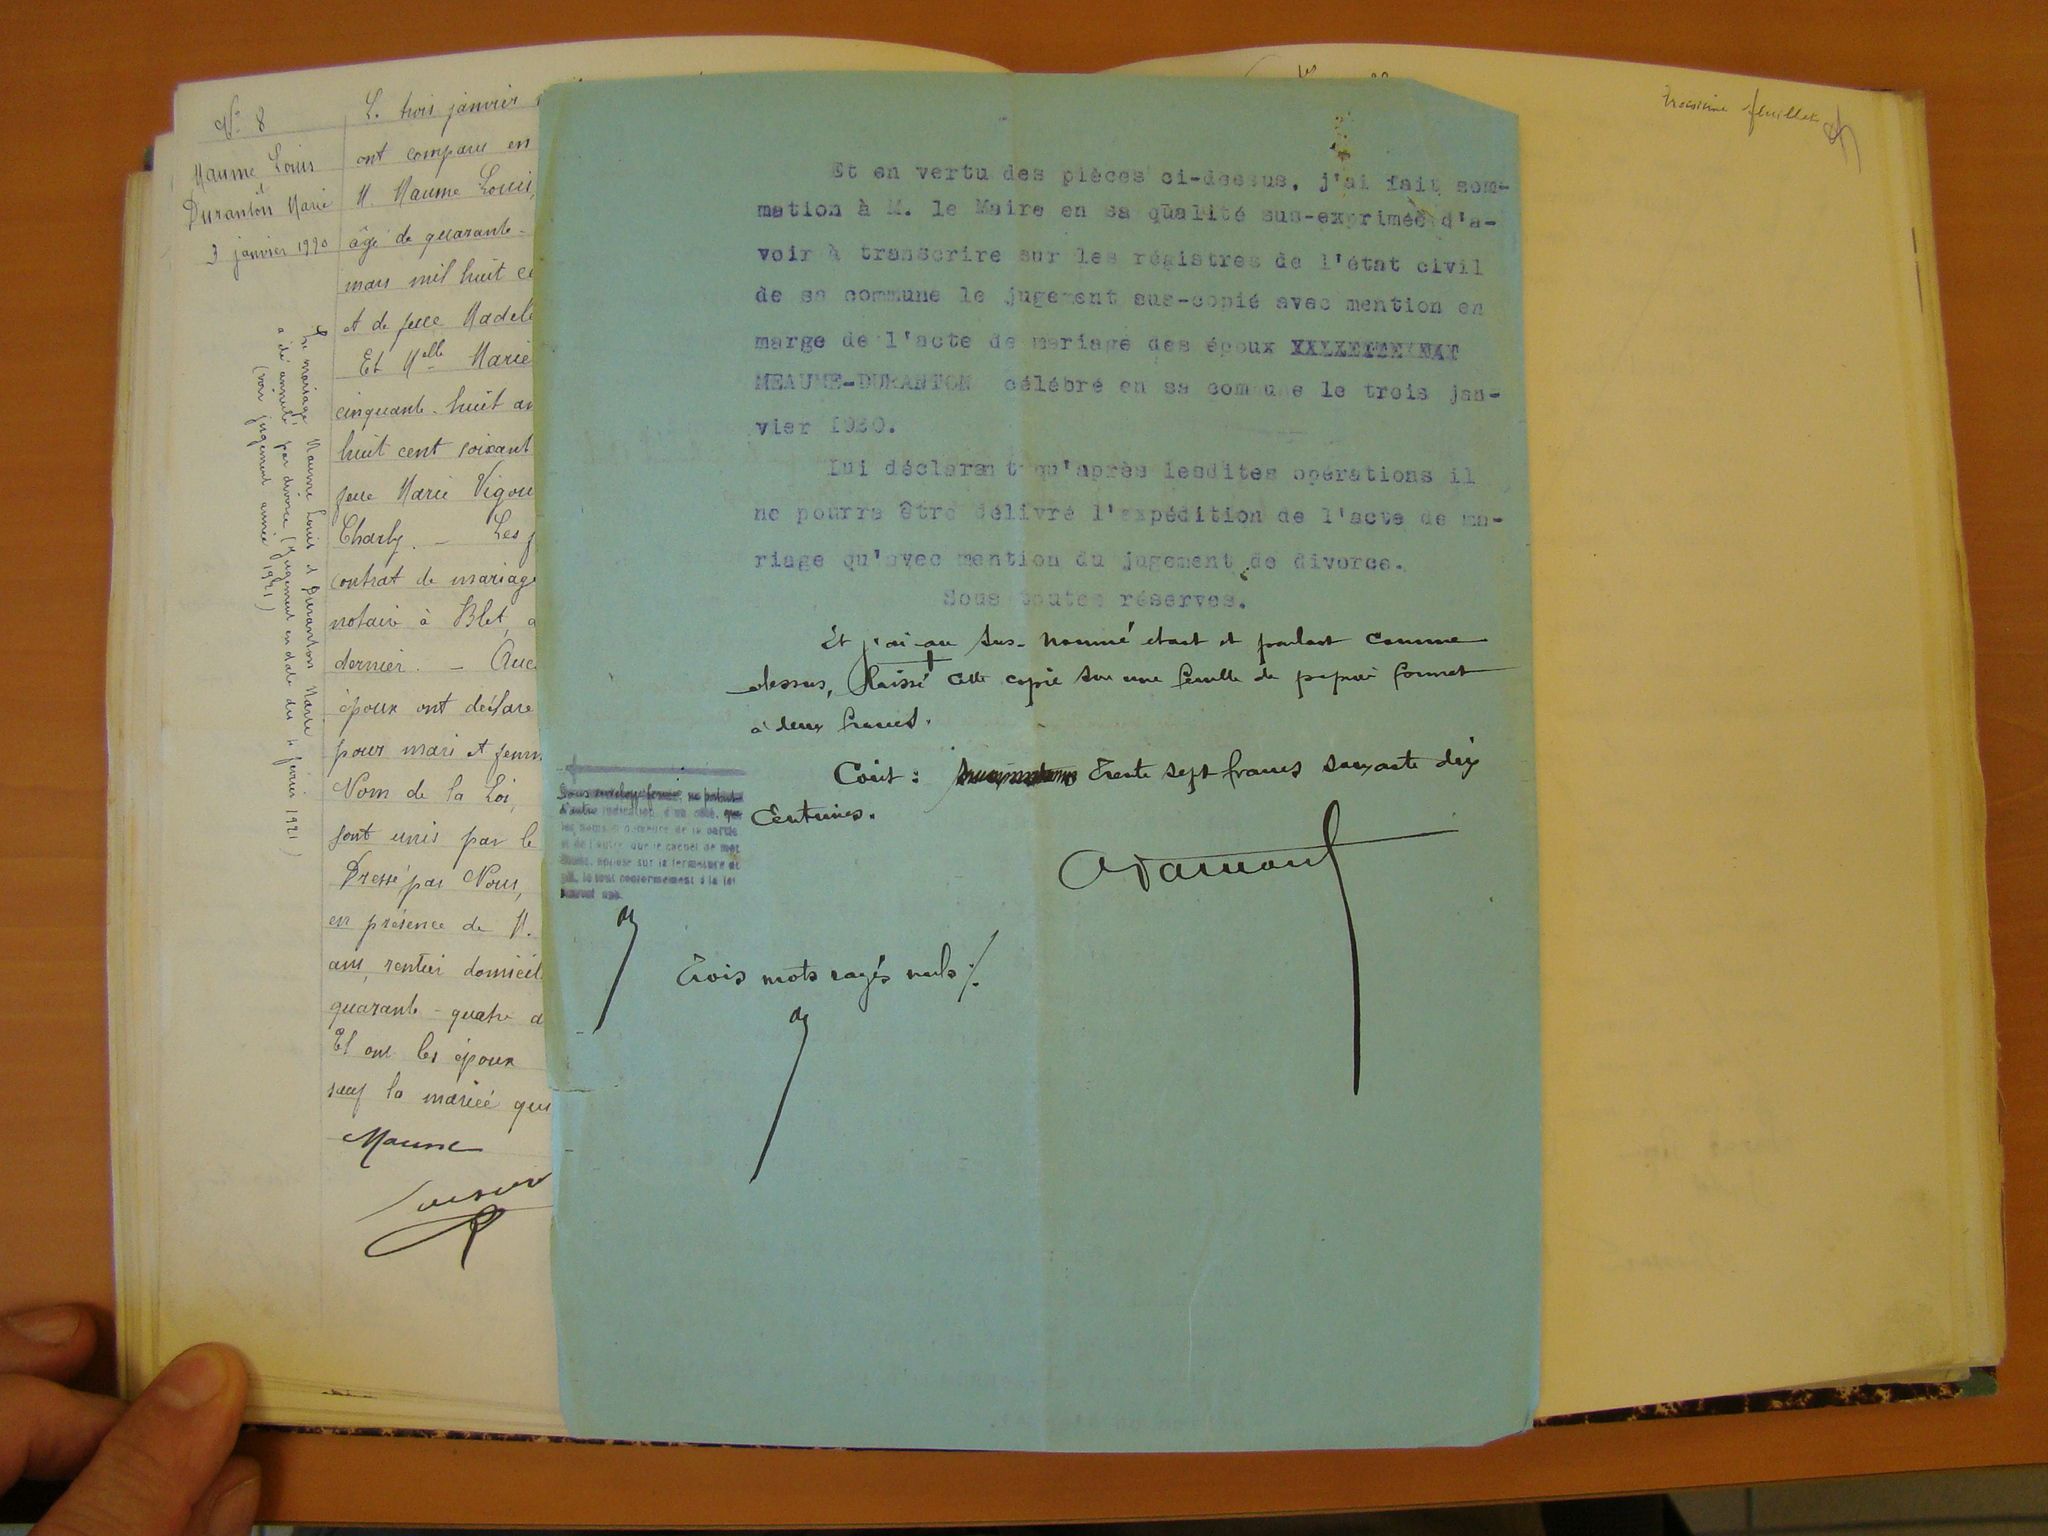 N° 8
Maume Louis
et
Duranton Marie
3 janvier 1920
Le mariage Maume Louis et Duranton Marie
a été annulé par divorce (jugement en date du 4 février 1921)
(voir jugement année 1921)
L. trois janvier
ont comparu en
M. Maume Louis,
âgé de quarante-
mars mil huit ce
et de feue Madele
Et Melle Marie
cinquante-huit an
huit cent soixant
feue Marie Vigou
Charly. — Les
contrat de mariage
notaire à Blet,
dernier. — Auc
époux ont déclaré
pour mari et femm
Nom de la Loi,
sont unis par le
Dressé par Nous,
en présence de M.
ans, rentier domicil
quarante-quatre a
Et ont les époux
sauf la mariée qui
Maume
troisième feuillet
Et en vertu des pièces ci-dessus, j'ai fait som-
mation à M. le Maire en sa qualité sus-exprimée d'a-
voir à transcrire sur les régistres de l'état civil
de sa commune le jugement sus-copié avec mention en
marge de l'acte de mariage des époux
MEAUME-DURANTON célébré en sa commune le trois jan-
vier 1920.
Lui déclarant qu'après lesdites opérations il
ne pourra être délivré l'expédition de l'acte de ma-
riage qu'avec mention du jugement de divorce.
Sous toutes réserves.
Et j'ai au sus-nommé étant et parlant comme
dessus, laissé cette copie sur une feuille de papier format
à deux francs.
Coût : Trente sept francs soixante dix
Centimes.
Sous enveloppe fermée, ne portant
d'autre indication, d'un côté, que
les noms et demeure de la partie
et de l'autre, que le cachet de mon
étude, apposé sur la fermeture du
pli, le tout conformément à la loi
Trois mots rayés nuls ./.